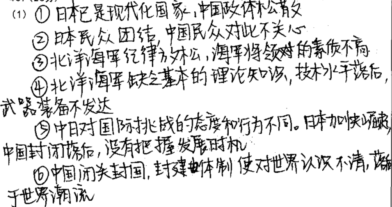 (1) ① 日本已是现代化国家,中国政体松散
② 日本民众团结,中国民众对此不关心
③ 北洋海军纪律松,海军将领的素质不高
④ 北洋海军缺乏基本的理论知识,技术水平落后,
武器装备不发达
⑤ 中日对国际挑战的态度和行为不同。日本加快
中国封闭落后,没有把握发展时机
⑥ 中国闭关封国,封建体制使对世界认识不清,落后
于世界潮流